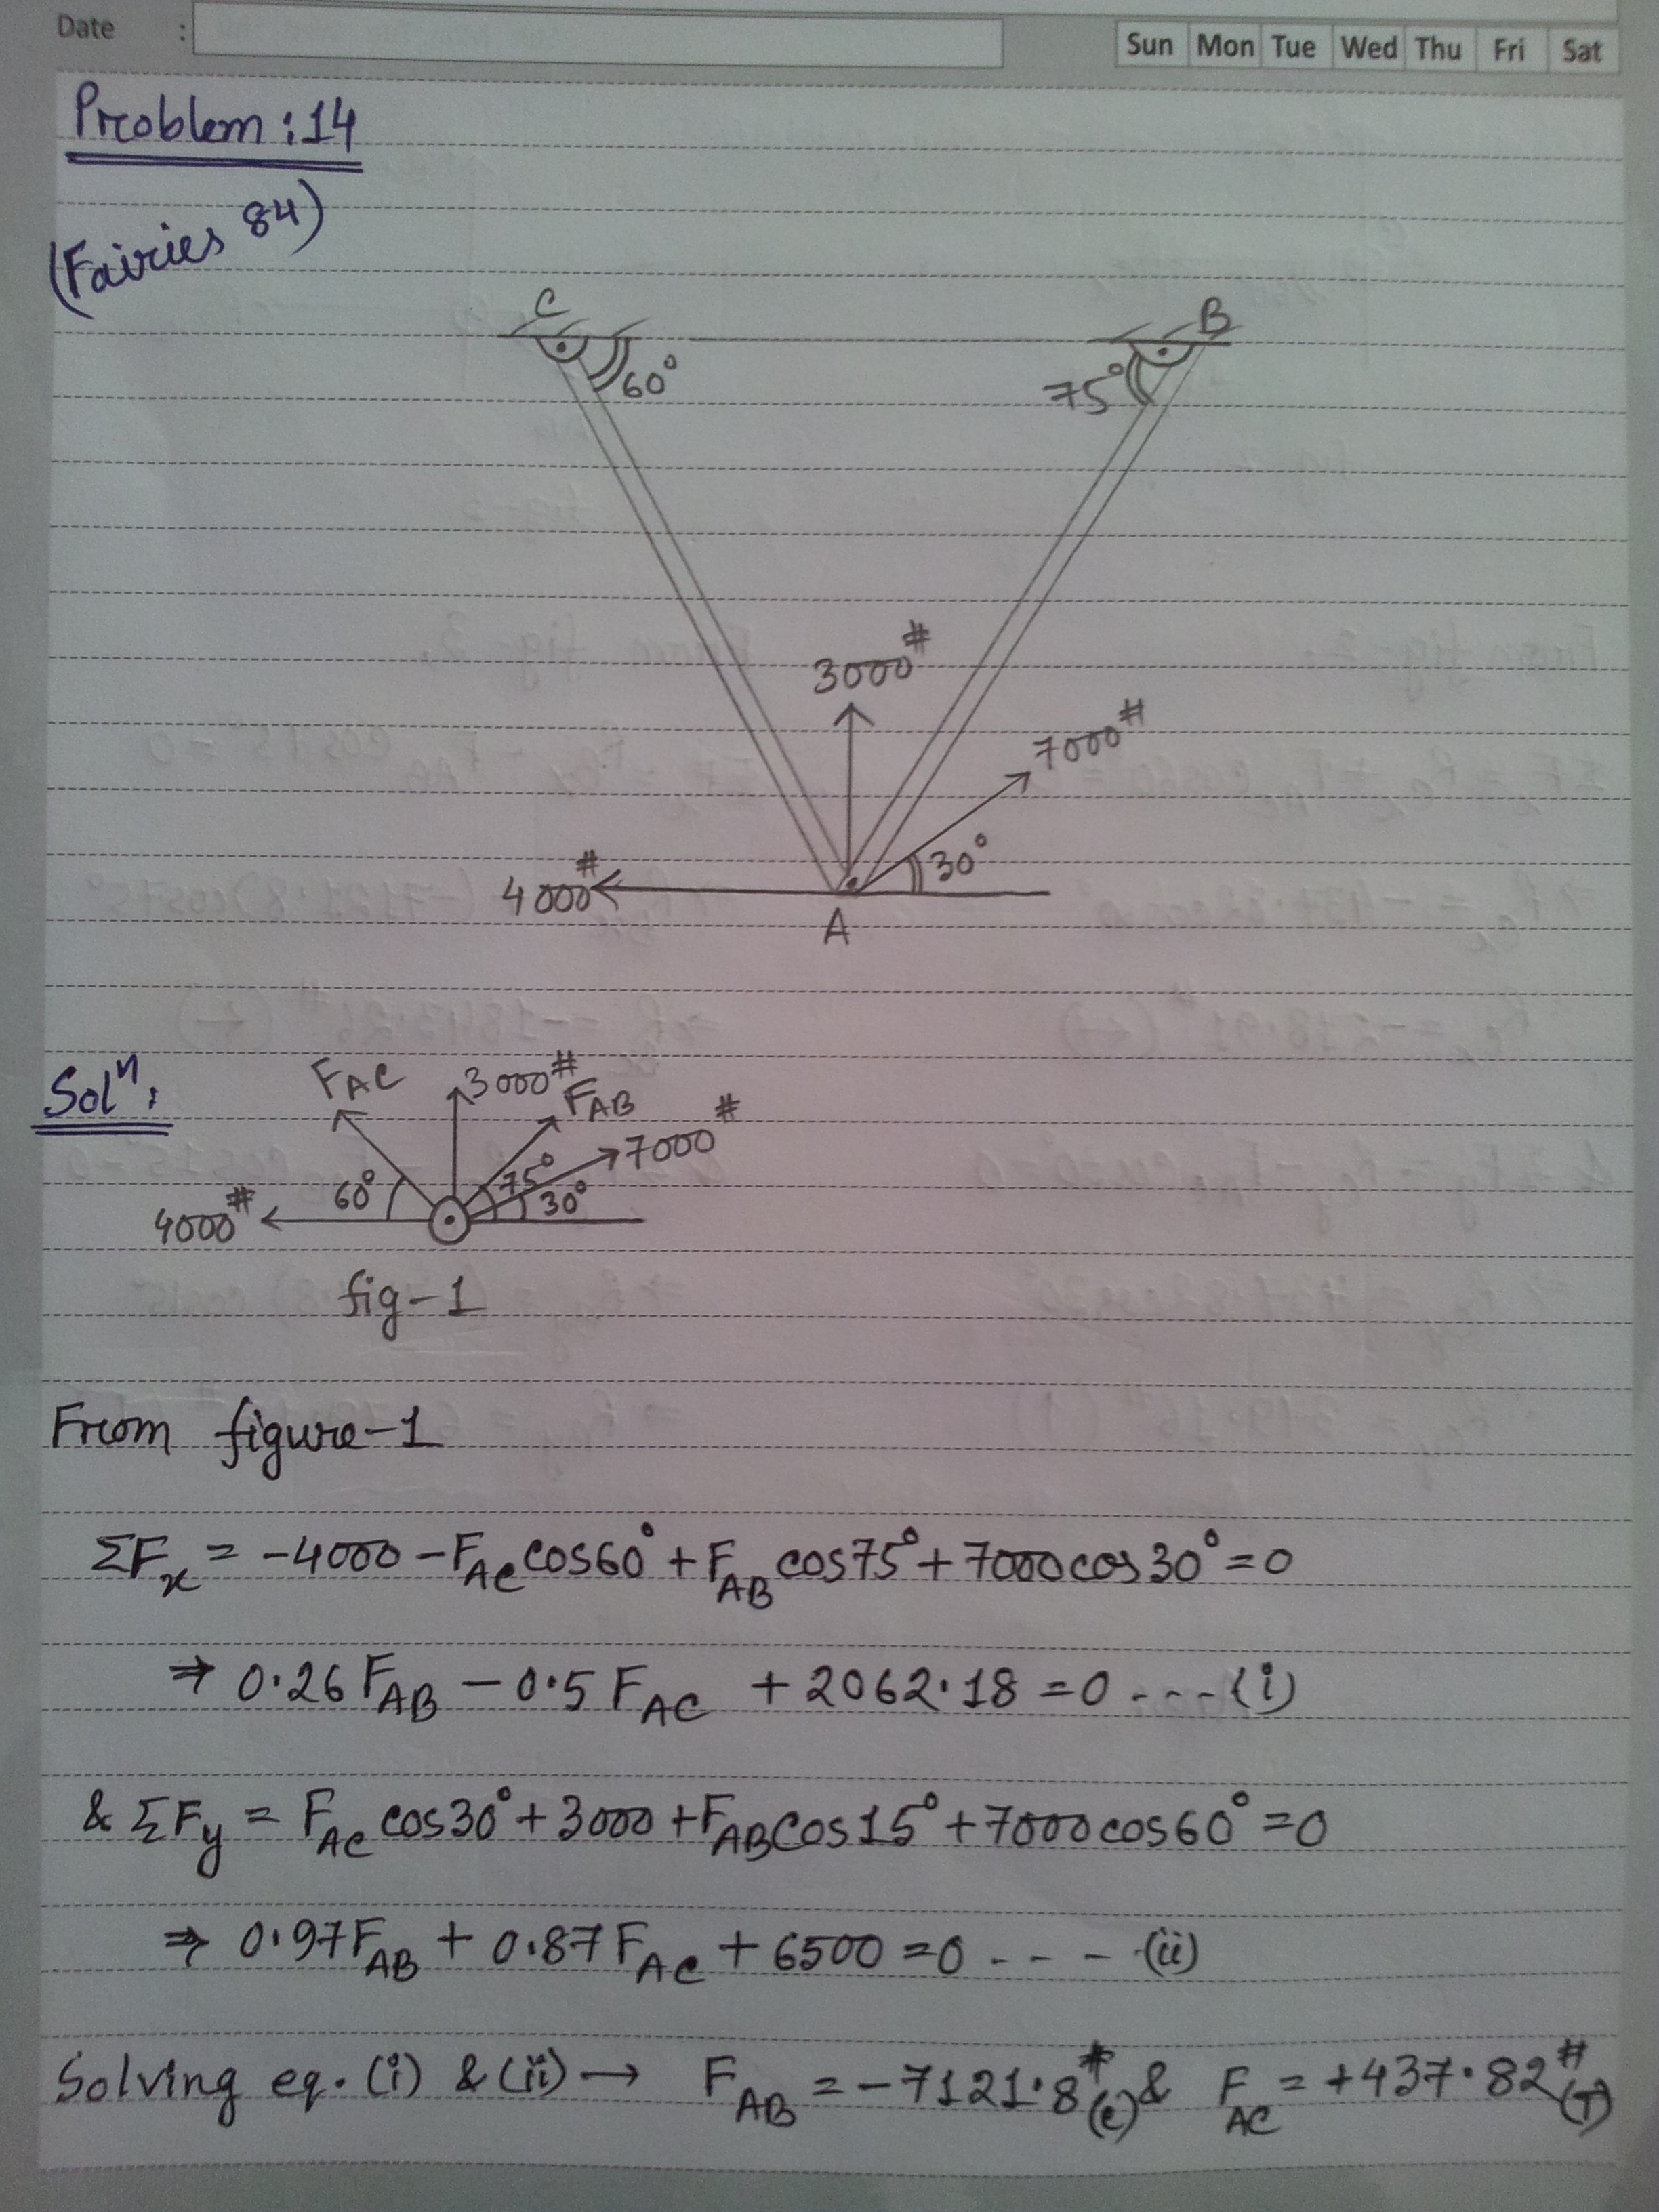 Date :
Sun Mon Tue Wed Thu Fri Sat
Problem: 14
(Fairies 84)
C B
60° 75°
3000#
7000#
30°
4000#
A
Solⁿ:
F_AC 3000# F_AB
7000#
60° 75° 30°
4000#
fig-1
From figure-1
ΣFx = -4000 - F_AC cos60° + F_AB cos75° + 7000cos30° = 0
⇒ 0.26 F_AB - 0.5 F_AC + 2062.18 = 0 ---- (i)
& ΣFy = F_AC cos30° + 3000 + F_AB cos15° + 7000cos60° = 0
⇒ 0.97F_AB + 0.87F_AC + 6500 = 0 - - - - (ii)
Solving eq. (i) & (ii) → F_AB = -7121.8# (c) & F_AC = +437.82# (T)